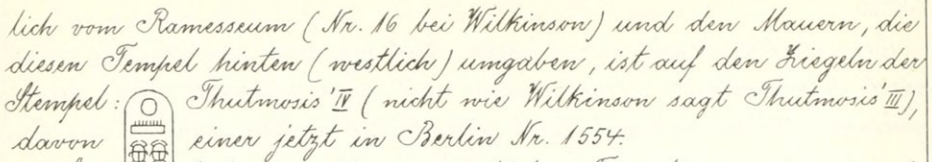 lich vom Ramesseum (Nr. 16 bei Wilkinson) und den Mauern, die
diesen Tempel hinten (westlich) umgaben, ist auf den Ziegeln der
Stempel: Thutmosis' IV (nicht wie Wilkinson sagt Thutmosis' III),
davon einer jetzt in Berlin Nr. 1554.